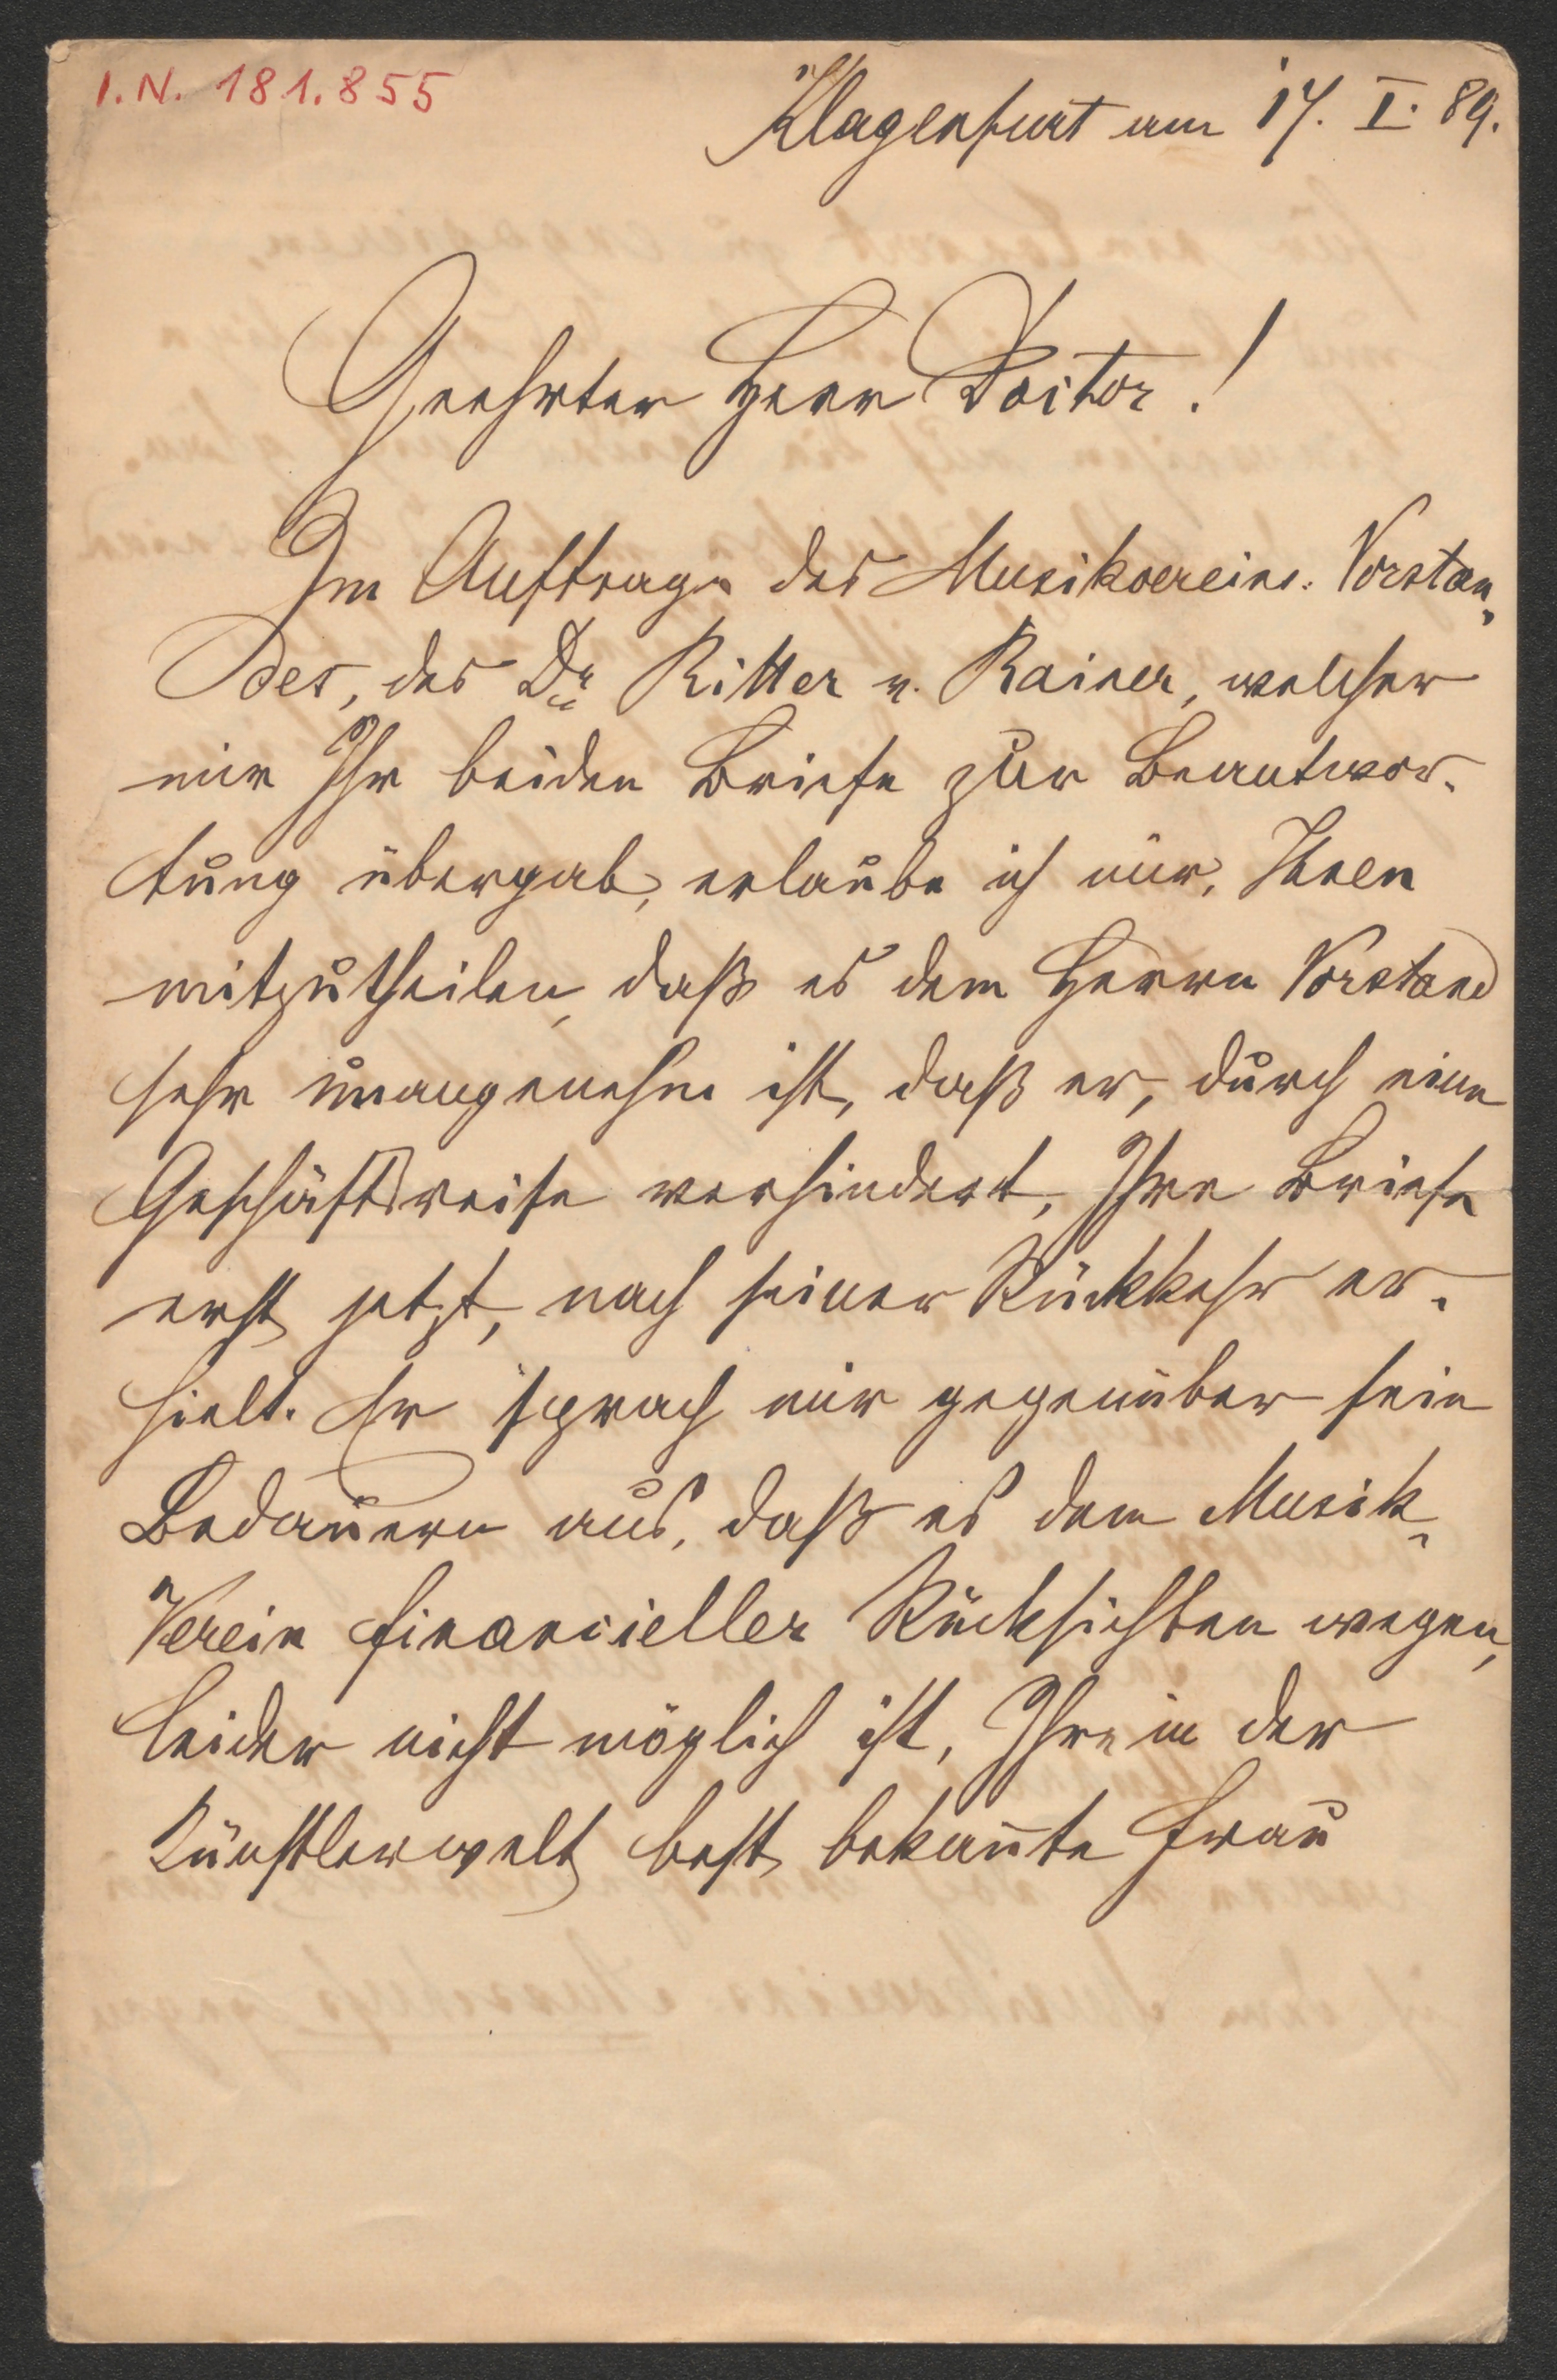 I.N. 181.855
Klagenfurt am 17. I. 89.
Geehrter Herr Doctor!
Im Auftrage des Musikvereins-Vorstan-
des, des Dr Ritter v. Rainer, welcher
mir Ihr beiden Briefe zur Beantwor-
tung übergab, erlaube ich mir, Ihnen
mitzutheilen, daß es dem Herrn Vorstand
sehr unangenehm ist, daß er, durch eine
Geschäftsreise verhindert, Ihre Briefe
erst jetzt, nach seiner Rückkehr er-
hielt. Er sprach mir gegenüber sein
Bedauern aus, daß es dem Musik-
Verein financieller Rücksichten wegen,
leider nicht möglich ist, Ihre in der
Künstlerwelt best bekannte Frau